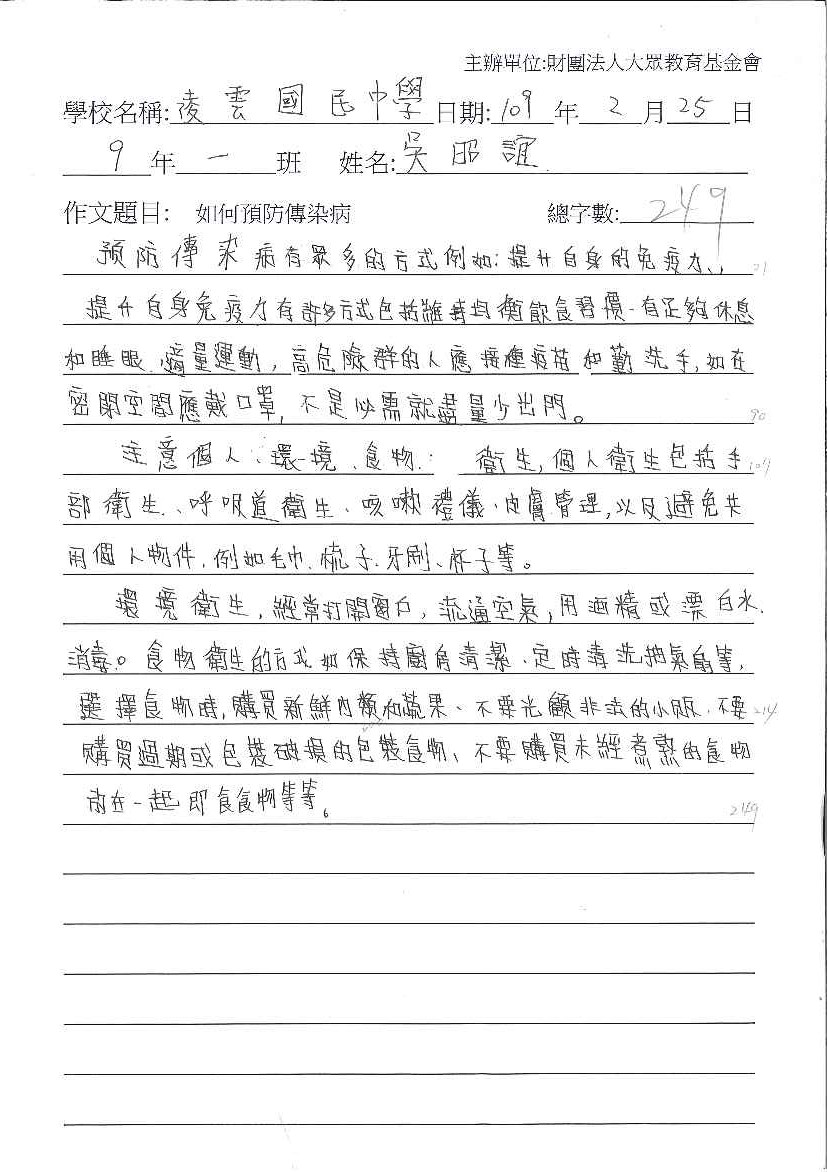 主辦單位:財團法人大眾教育基金會
學校名稱:凌雲國民中學日期:109年2月25日
9年一班 姓名:吳昭誼
作文題目: 如何預防傳染病 總字數: 249
預防傳染病有眾多的方式例如:提升自身的免疫力、 21
提升自身免疫力有許多方式包括維持均衡飲食習慣、有足夠休息
和睡眠、適量運動,高危險群的人應接種疫苗和勤洗手,如在
密閉空間應戴口罩,不是必需就盡量少出門。 90
注意個人、環境、食物: 衛生,個人衛生包括手 107
部衛生、呼吸道衛生、咳嗽禮儀、皮膚管理,以及避免共
用個人物件,例如毛巾、梳子、牙刷、杯子等。
環境衛生,經常打開窗戶,流通空氣,用酒精或漂白水
消毒。食物衛生的方式如保持廚房清潔、定時清洗抽氣扇等,
選擇食物時,購買新鮮肉類和蔬果、不要光顧非法的小販、不要 214
購買過期或包裝破損的包裝食物、不要購買未經煮熟的食物
放在一起即食食物等等。 249